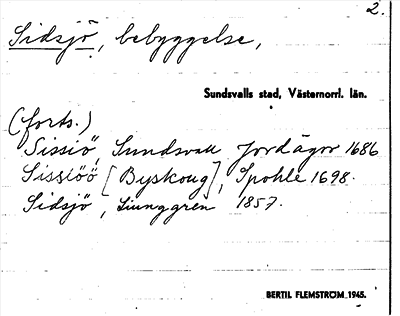 2.
Sidsjö, bebyggelse,
Sundsvalls stad, Västernorrl. län.
(forts.)
Sissiö, Sundsvall Jordägor 1686
Sissiöö [Byskoug], Spohle 1698.
Sidsjö, Liunggren 1857.
BERTIL FLEMSTRÖM 1945.